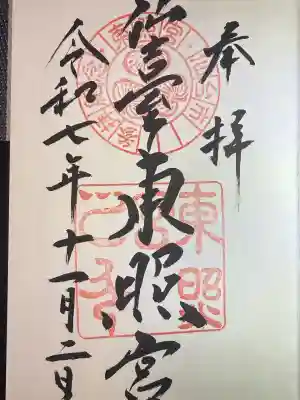 奉拝
仙臺東照宮
令和七年十一月二日